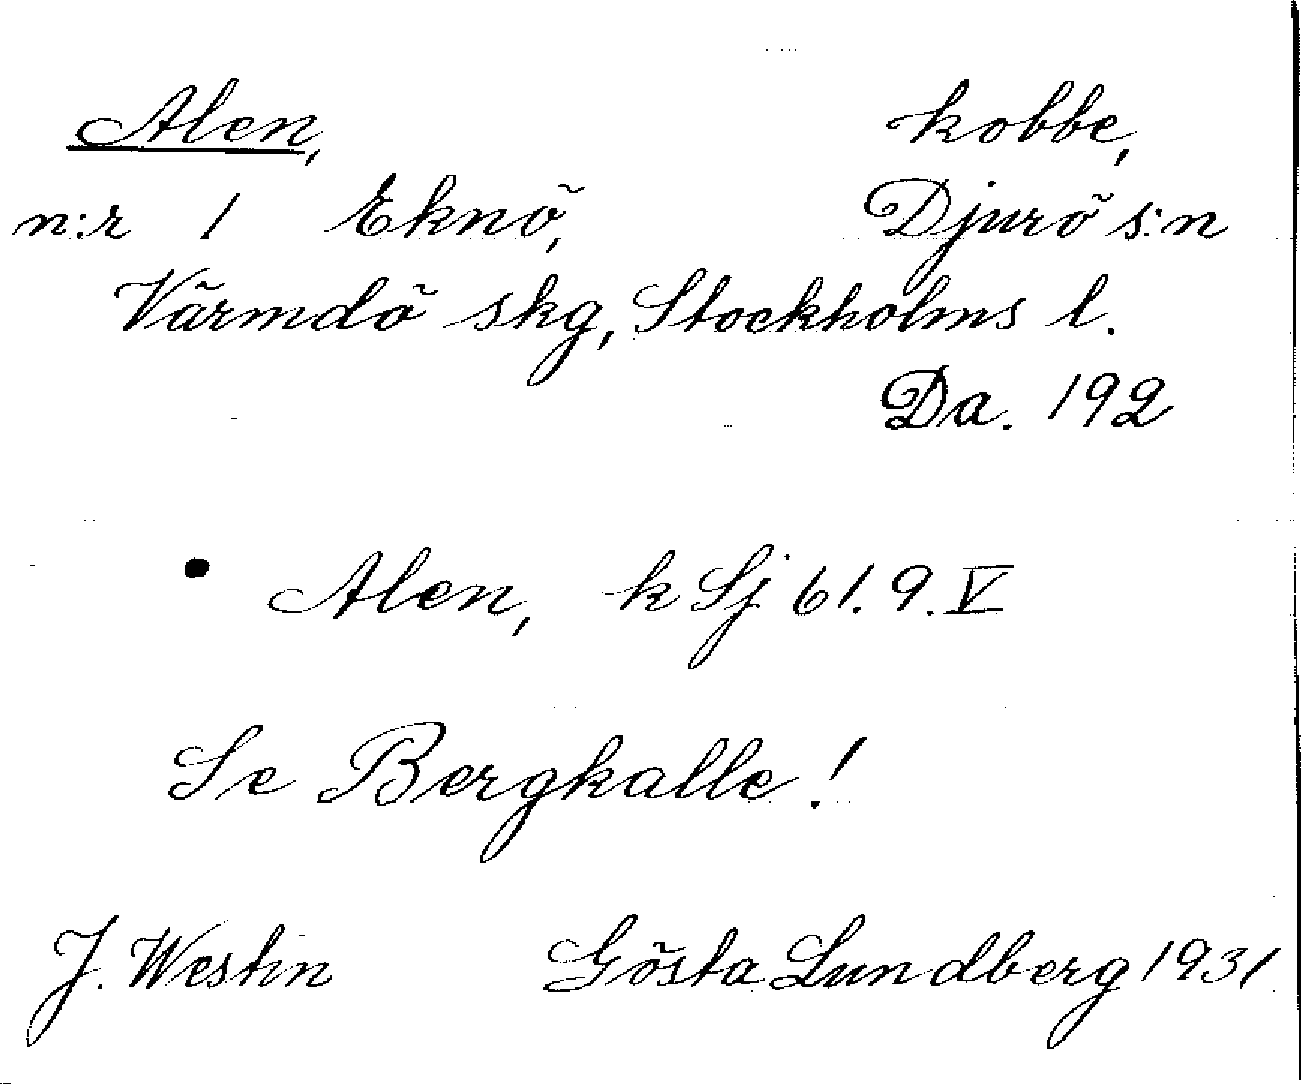 Alen, kobbe,
n:r 1 Eknö, Djurö s:n
Värmdö skg, Stockholms l.
Da. 192
• Alen, k Sj 61.9.V
Se Bergkalle!
J. Westin Gösta Lundberg 1931